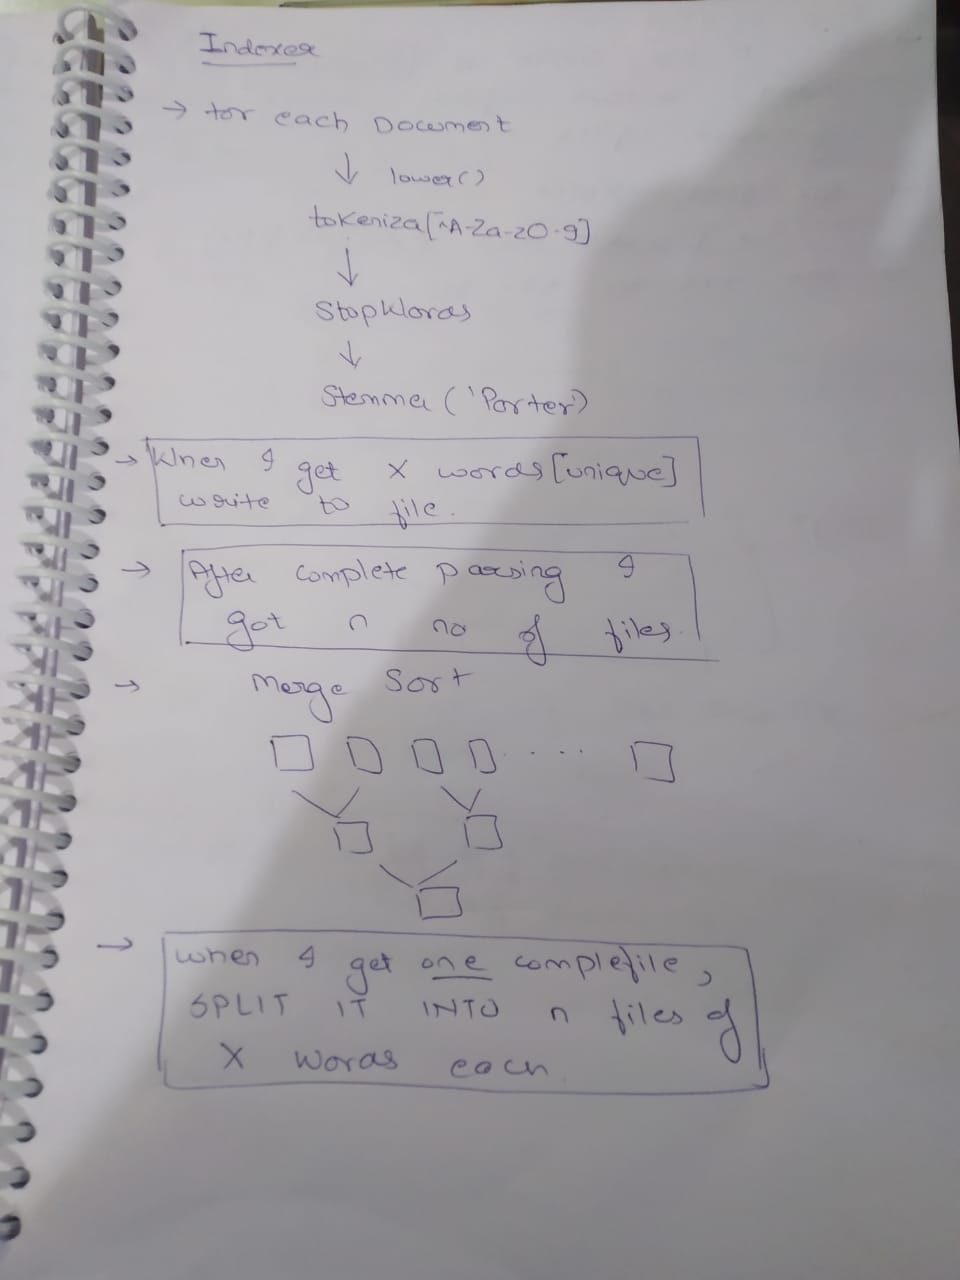 Indexer
→ for each Document
↓ lower()
tokeniza[^A-Za-z0-9]
↓
StopWords
↓
Stemmer ('Porter')
→ When I get X words [unique]
write to file.
→ After complete parsing I
got n no of files.
→ Merge Sort
....
→ when I get one complefile,
SPLIT IT INTO n files of
X words each